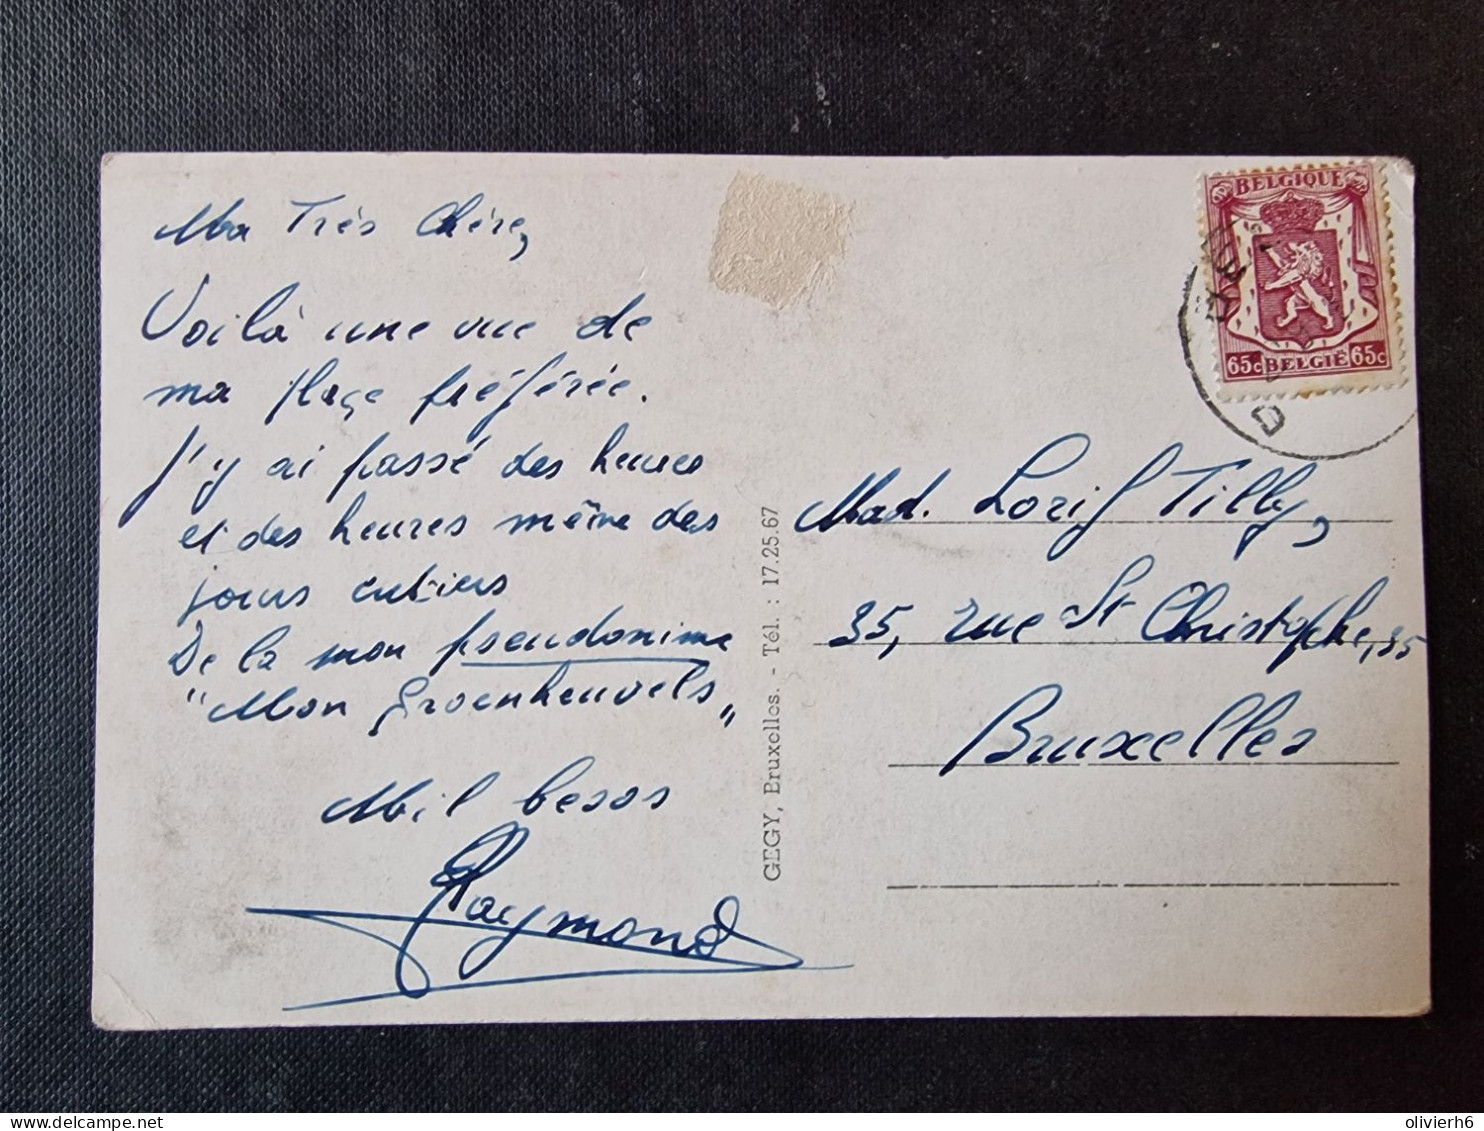 Ma Très Chère,
Voilà une vue de
ma plage préférée.
J'y ai passé des heures
et des heures même des
jours entiers
De là mon pseudonime
"Mon Groenheuvels"
Mil besos
Raymond
GEGY, Bruxelles. - Tél. : 17.25.67
BELGIQUE
65c BELGIË 65c
Mad. Lorif Tilly,
35, rue St Christophe, 35
Bruxelles
olivierh6